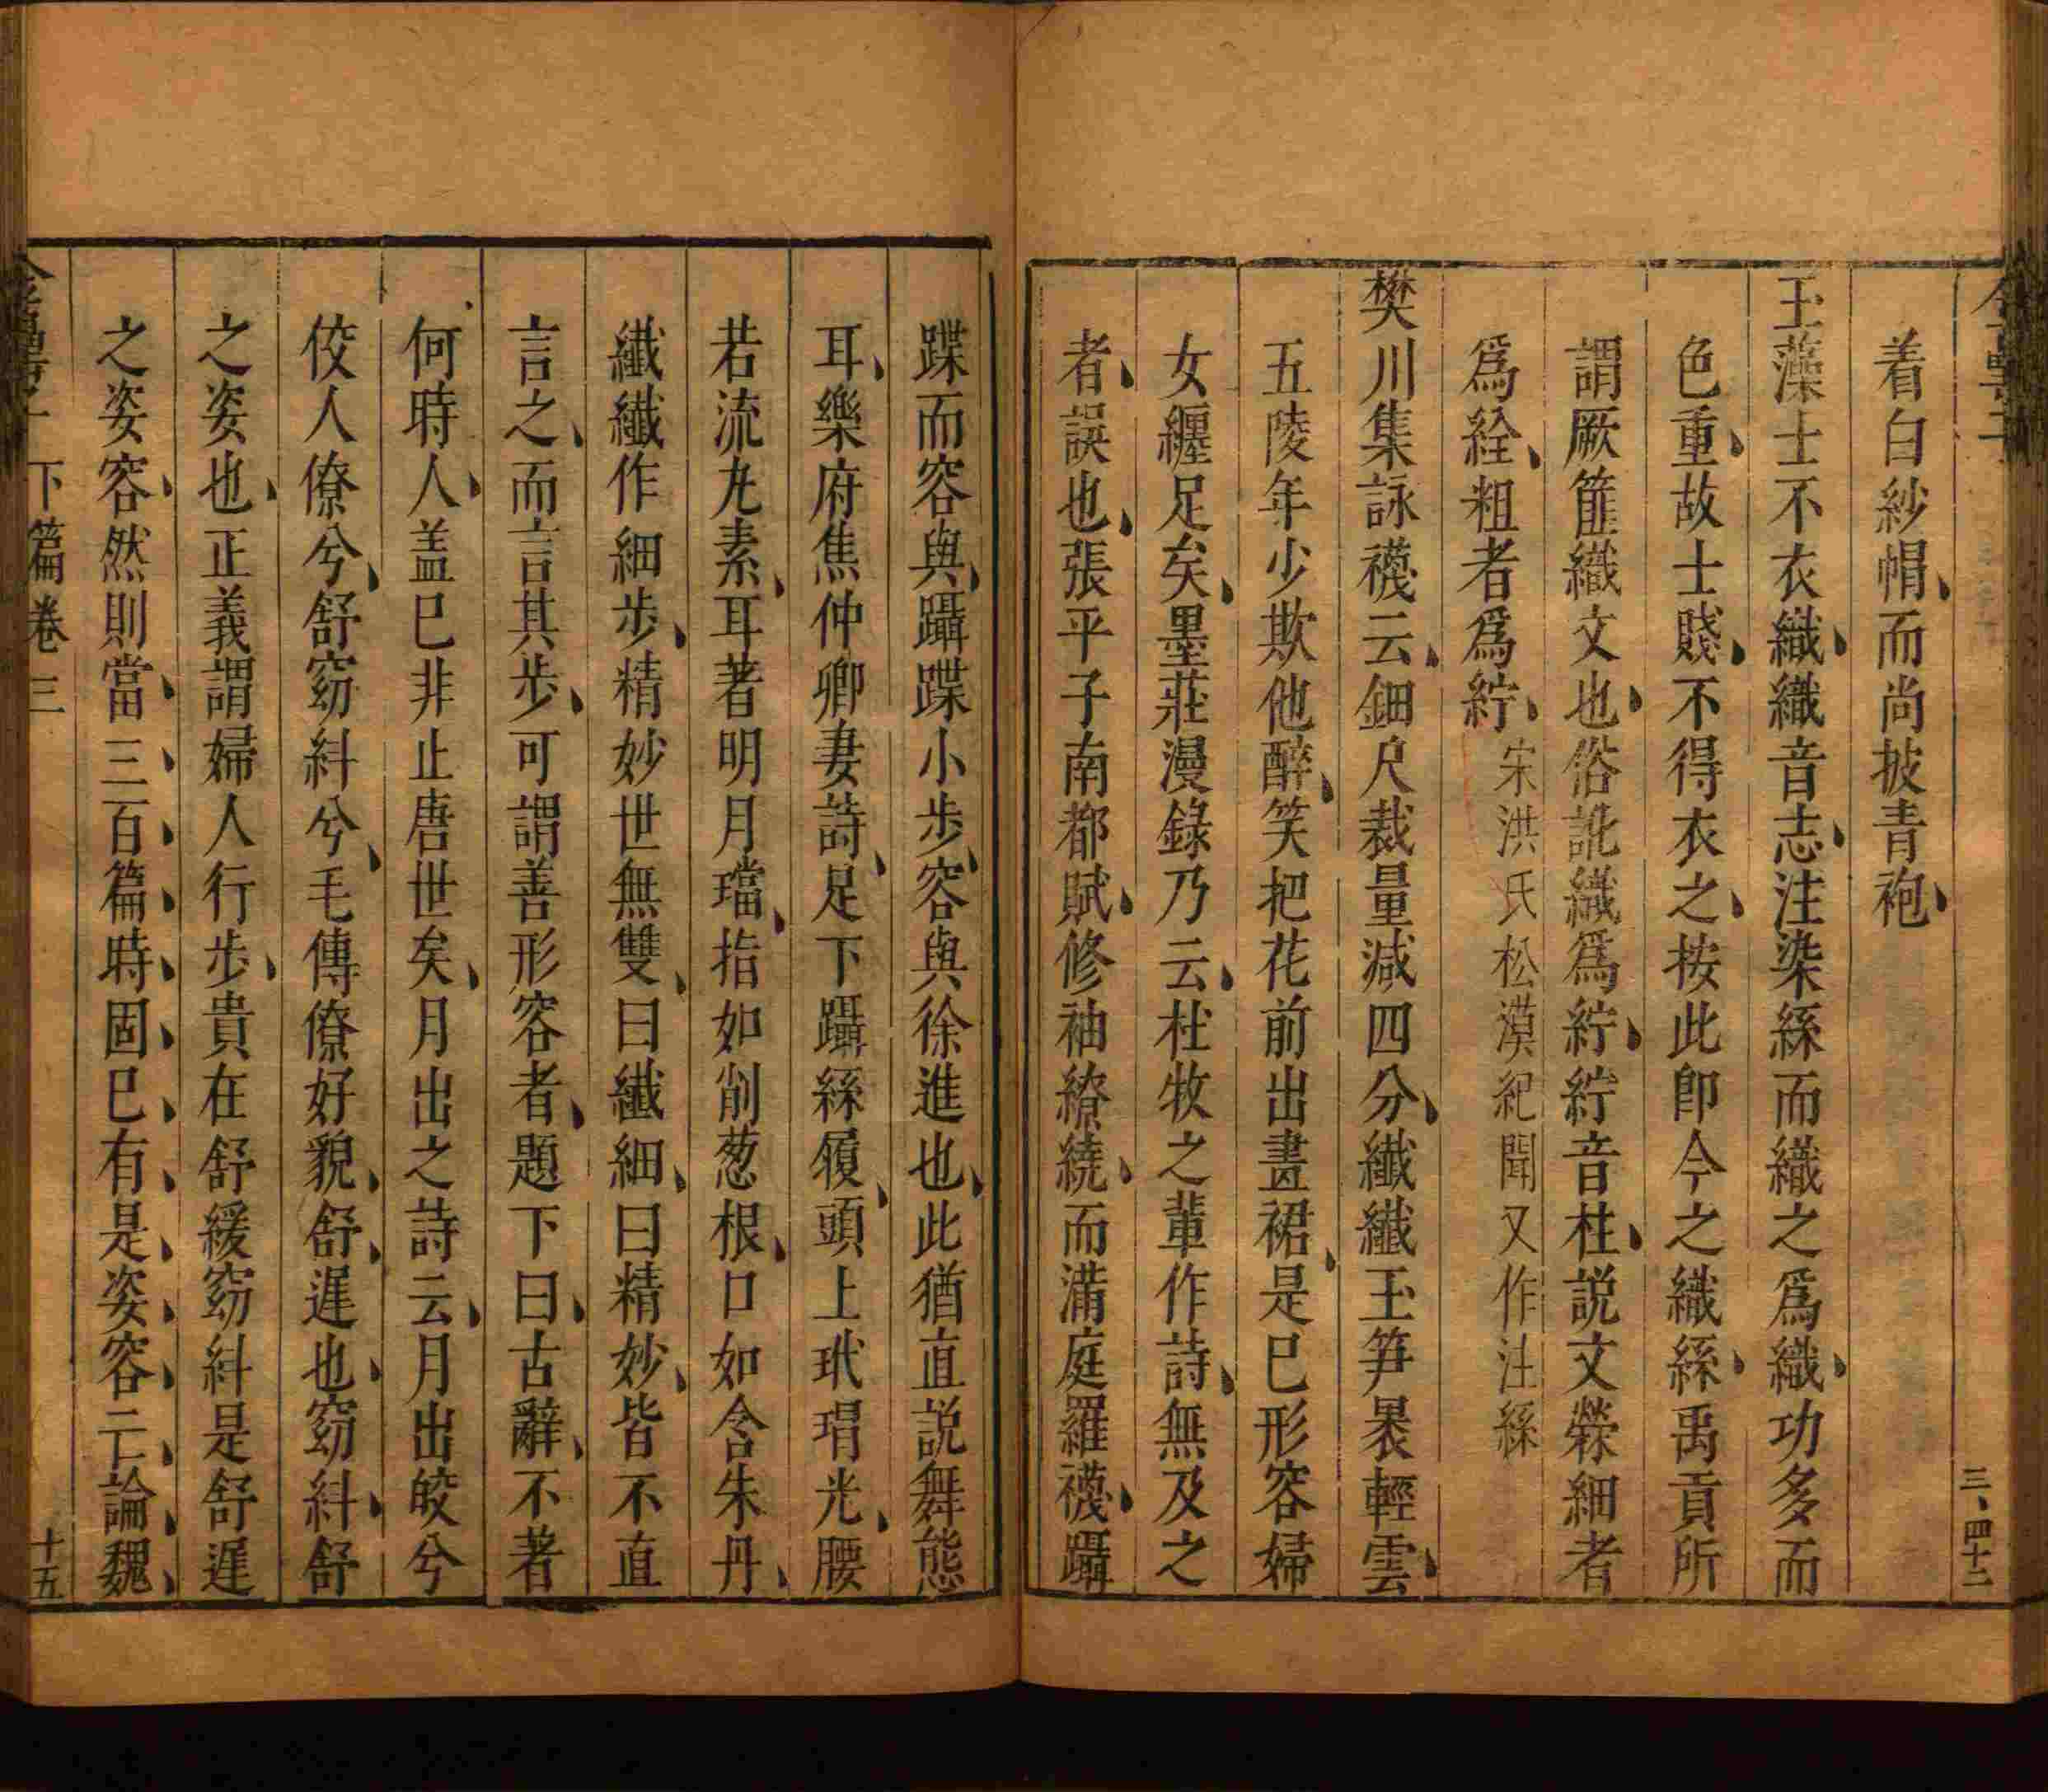 着白紗帽而尚披青袍
玉藻士不衣織織音志注染絲而織之爲織功多而
色重故士賤不得衣之按此即今之織絲禹貢所
謂厥篚織文也俗訛織爲紵紵音杜説文檾細者
爲絟粗者爲紵宋洪氏松漠紀聞又作注絲
樊川集詠襪云鈿尺裁量減四分纖纖玉笋褁輕雲
五陵年少欺他醉笑把花前出畫裙是巳形容婦
女纏足矣墨莊漫錄乃云杜牧之輩作詩無及之
者誤也張平子南都賦修袖繚繞而滿庭羅襪躡
三、四十二
蹀而容與躡蹀小步容與徐進也此猶直説舞態
耳樂府焦仲卿妻詩足下躡絲履頭上玳瑁光腰
若流丸素耳著明月璫指如削葱根口如含朱丹
纖纖作細步精妙世無雙曰纖細曰精妙皆不直
言之而言其步可謂善形容者題下曰古辭不著
何時人盖巳非止唐世矣月出之詩云月出皎兮
佼人僚兮舒窈糾兮毛傳僚好貌舒遲也窈糾舒
之姿也正義謂婦人行步貴在舒緩窈糾是舒遲
之姿容然則當三百篇時固巳有是姿容亡論魏
下篇卷三
十五